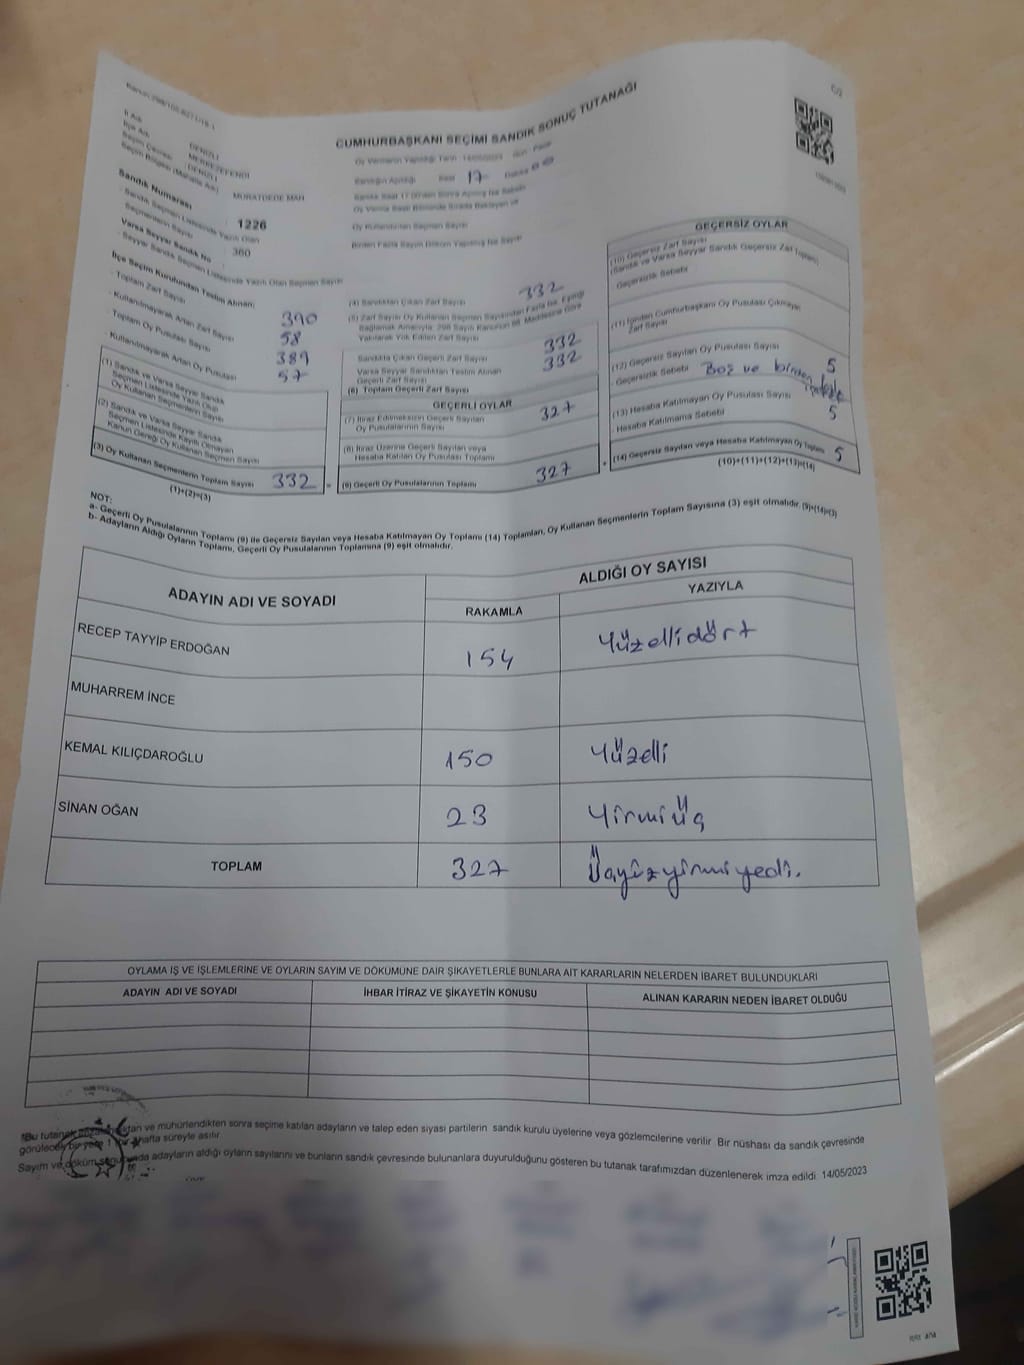 CUMHURBAŞKANI SEÇİMİ SANDIK SONUÇ TUTANAĞI
İl Adı : DENİZLİ
İlçe Adı : MERKEZEFENDİ
Seçim Çevresi : DENİZLİ
Seçim Bölgesi (Mahalle Adı) : MURATDEDE MAH
Sandık Numarası : 1226
Sandık Seçmen Listesinde Yazılı Olan Seçmenlerin Sayısı : 360
Varsa Seyyar Sandık No
Seyyar Sandık Seçmen Listesinde Yazılı Olan Seçmen Sayısı
Sandığın Açıldığı Saat 17
Oy Kullandıran Seçmen Sayısı
İlçe Seçim Kurulundan Teslim Alınan;
Toplam Zarf Sayısı 390
Kullanılmayarak Artan Zarf Sayısı 58
Toplam Oy Pusulası Sayısı 389
Kullanılmayarak Artan Oy Pusulası 57
(1) Sandık ve Varsa Seyyar Sandık
Seçmen Listesinde Yazılı Olup
Oy Kullanan Seçmenlerin Sayısı
(2) Sandık ve Varsa Seyyar Sandık
Seçmen Listesinde Kayıtlı Olmayan
Kanun Gereği Oy Kullanan Seçmen Sayısı
(3) Oy Kullanan Seçmenlerin Toplam Sayısı 332
(1)+(2)=(3)
(4) Sandıktan Çıkan Zarf Sayısı 332
(5) Zarf Sayısı Oy Kullanan Seçmen Sayısından Fazla ise, Eşitliği
Sağlamak Amacıyla; 298 Sayılı Kanunun 98. Maddesine Göre
Yakılarak Yok Edilen Zarf Sayısı
Sandıkta Çıkan Geçerli Zarf Sayısı 332
Varsa Seyyar Sandıktan Teslim Alınan
Geçerli Zarf Sayısı
(6) Toplam Geçerli Zarf Sayısı 332
GEÇERLİ OYLAR
(7) İtiraz Edilmeksizin Geçerli Sayılan
Oy Pusulalarının Sayısı 327
(8) İtiraz Üzerine Geçerli Sayılan veya
Hesaba Katılan Oy Pusulası Toplamı
(9) Geçerli Oy Pusulalarının Toplamı 327
GEÇERSİZ OYLAR
(10) Geçersiz Zarf Sayısı
(Sandık ve Varsa Seyyar Sandık Geçersiz Zarf Toplamı)
Geçersizlik Sebebi
(11) İçinden Cumhurbaşkanı Oy Pusulası Çıkmayan
Zarf Sayısı
(12) Geçersiz Sayılan Oy Pusulası Sayısı 5
Geçersizlik Sebebi Boş ve birden
(13) Hesaba Katılmayan Oy Pusulası Sayısı 5
Hesaba Katılmama Sebebi
(14) Geçersiz Sayılan veya Hesaba Katılmayan Oy Toplamı 5
(10)+(11)+(12)+(13)=(14)
NOT:
a- Geçerli Oy Pusulalarının Toplamı (9) ile Geçersiz Sayılan veya Hesaba Katılmayan Oy Toplamı (14) Toplamları, Oy Kullanan Seçmenlerin Toplam Sayısına (3) eşit olmalıdır. (9)+(14)=(3)
b- Adayların Aldığı Oyların Toplamı, Geçerli Oy Pusulalarının Toplamına (9) eşit olmalıdır.
ADAYIN ADI VE SOYADI
ALDIĞI OY SAYISI
RAKAMLA YAZIYLA
RECEP TAYYİP ERDOĞAN 154 Yüzellidört
MUHARREM İNCE
KEMAL KILIÇDAROĞLU 150 Yüzelli
SİNAN OĞAN 23 Yirmiüç
TOPLAM 327 Üçyüzyirmiyedi.
OYLAMA İŞ VE İŞLEMLERİNE VE OYLARIN SAYIM VE DÖKÜMÜNE DAİR ŞİKAYETLERLE BUNLARA AİT KARARLARIN NELERDEN İBARET BULUNDUKLARI
ADAYIN ADI VE SOYADI İHBAR İTİRAZ VE ŞİKAYETİN KONUSU ALINAN KARARIN NEDEN İBARET OLDUĞU
*Bu tutanak ve mühürlendikten sonra seçime katılan adayların ve talep eden siyasi partilerin sandık kurulu üyelerine veya gözlemcilerine verilir. Bir nüshası da sandık çevresinde
görülecek bir yere 1 hafta süreyle asılır.
Sayım ve döküm sonucunda adayların aldığı oyların sayılarını ve bunların sandık çevresinde bulunanlara duyurulduğunu gösteren bu tutanak tarafımızdan düzenlenerek imza edildi. 14/05/2023